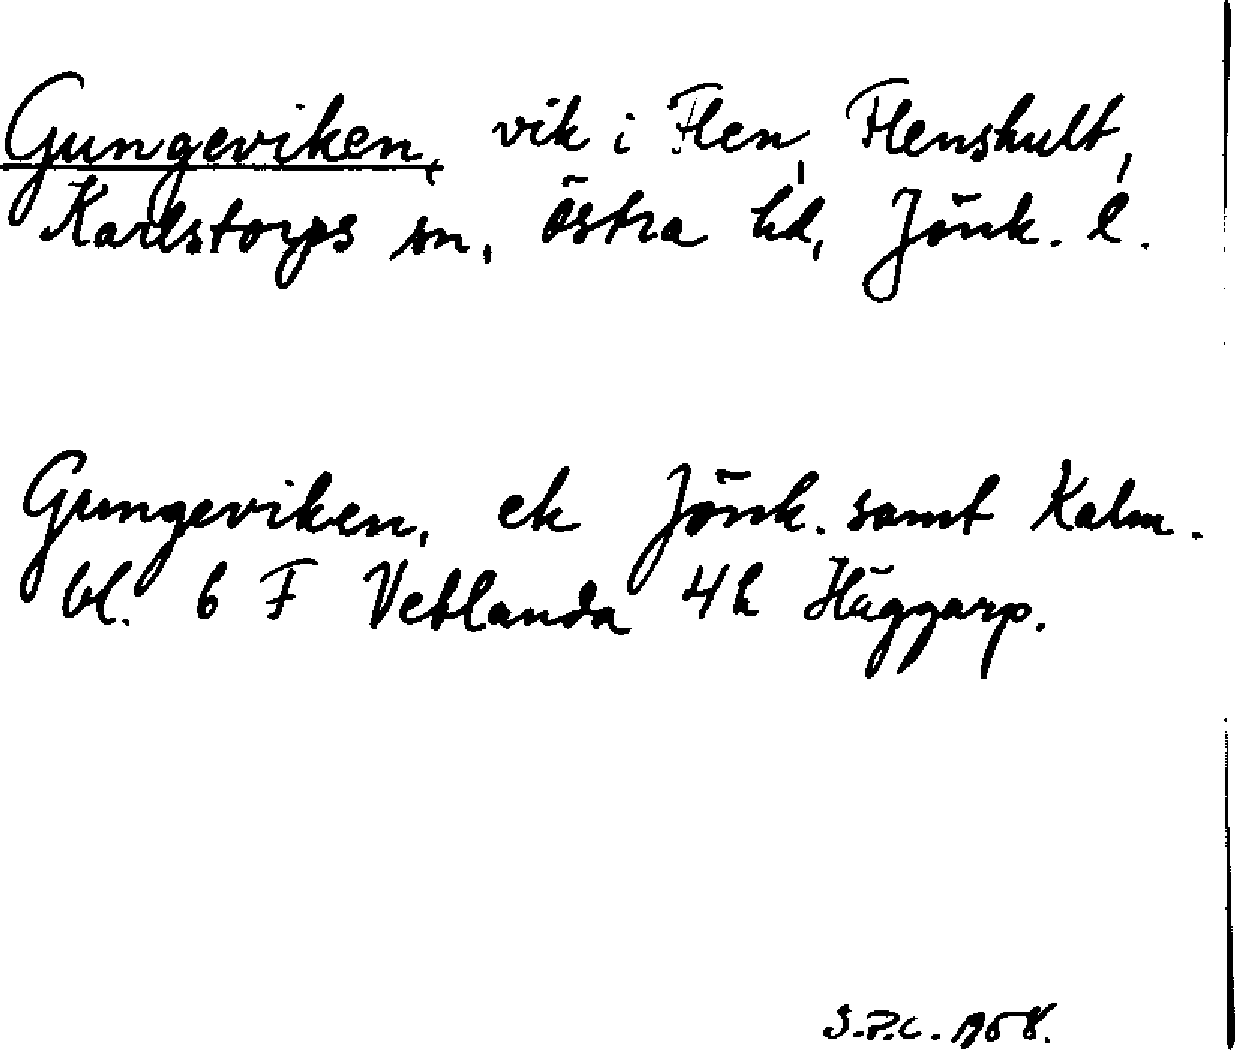 Gungeviken, vik i Flen, Flenshult,
Karlstorps sn, östra hd, Jönk. l.
Gungeviken, ek Jönk. samt Kalm.
bl. 6 F Vetlanda 4h Häggarp.
S.P.C. 1958.